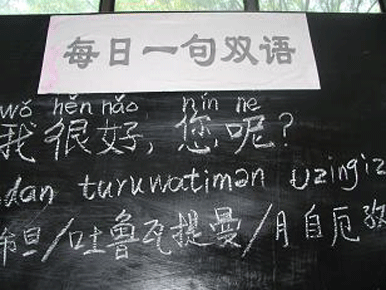 每日一句双语
wǒ hěn hǎo nín ne
我很好,您呢?
dan turuwatimən uzingiz
布旦/吐鲁瓦提曼/月自厄孜